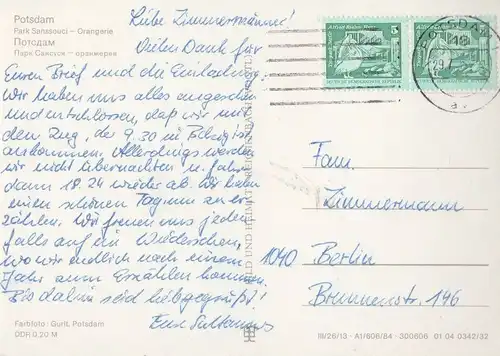 Potsdam
Park Sanssouci – Orangerie
Потсдам
Парк Сансуси – оранжерея
Liebe Zimmermänner!
Vielen Dank für
Euren Brief und die Einladung,
wir haben uns alles angesehen
und entschlossen, daß wir mit
dem Zug, der 9.30 in ist,
ankommen. Allerdings werden
wir nicht übernachten u. fahren
dann 18.24 wieder ab. Wir haben
einen schönen Tag um zu er-
zählen. Wir freuen uns jeden-
falls auf ein Wiedersehen,
wo wir endlich nach einem
Jahr zum Erzählen kommen.
Bis dahin seid liebgegrüßt!
Eure
Farbfoto: Gurlt, Potsdam
DDR 0,20 M
BILD UND HEIMAT REICHENBACH
5
POTSDAM
Fam.
Zimmermann
1040 Berlin
Brunnenstr. 146
III/26/13 · A1/606/84 · 300606 01 04 0342/32